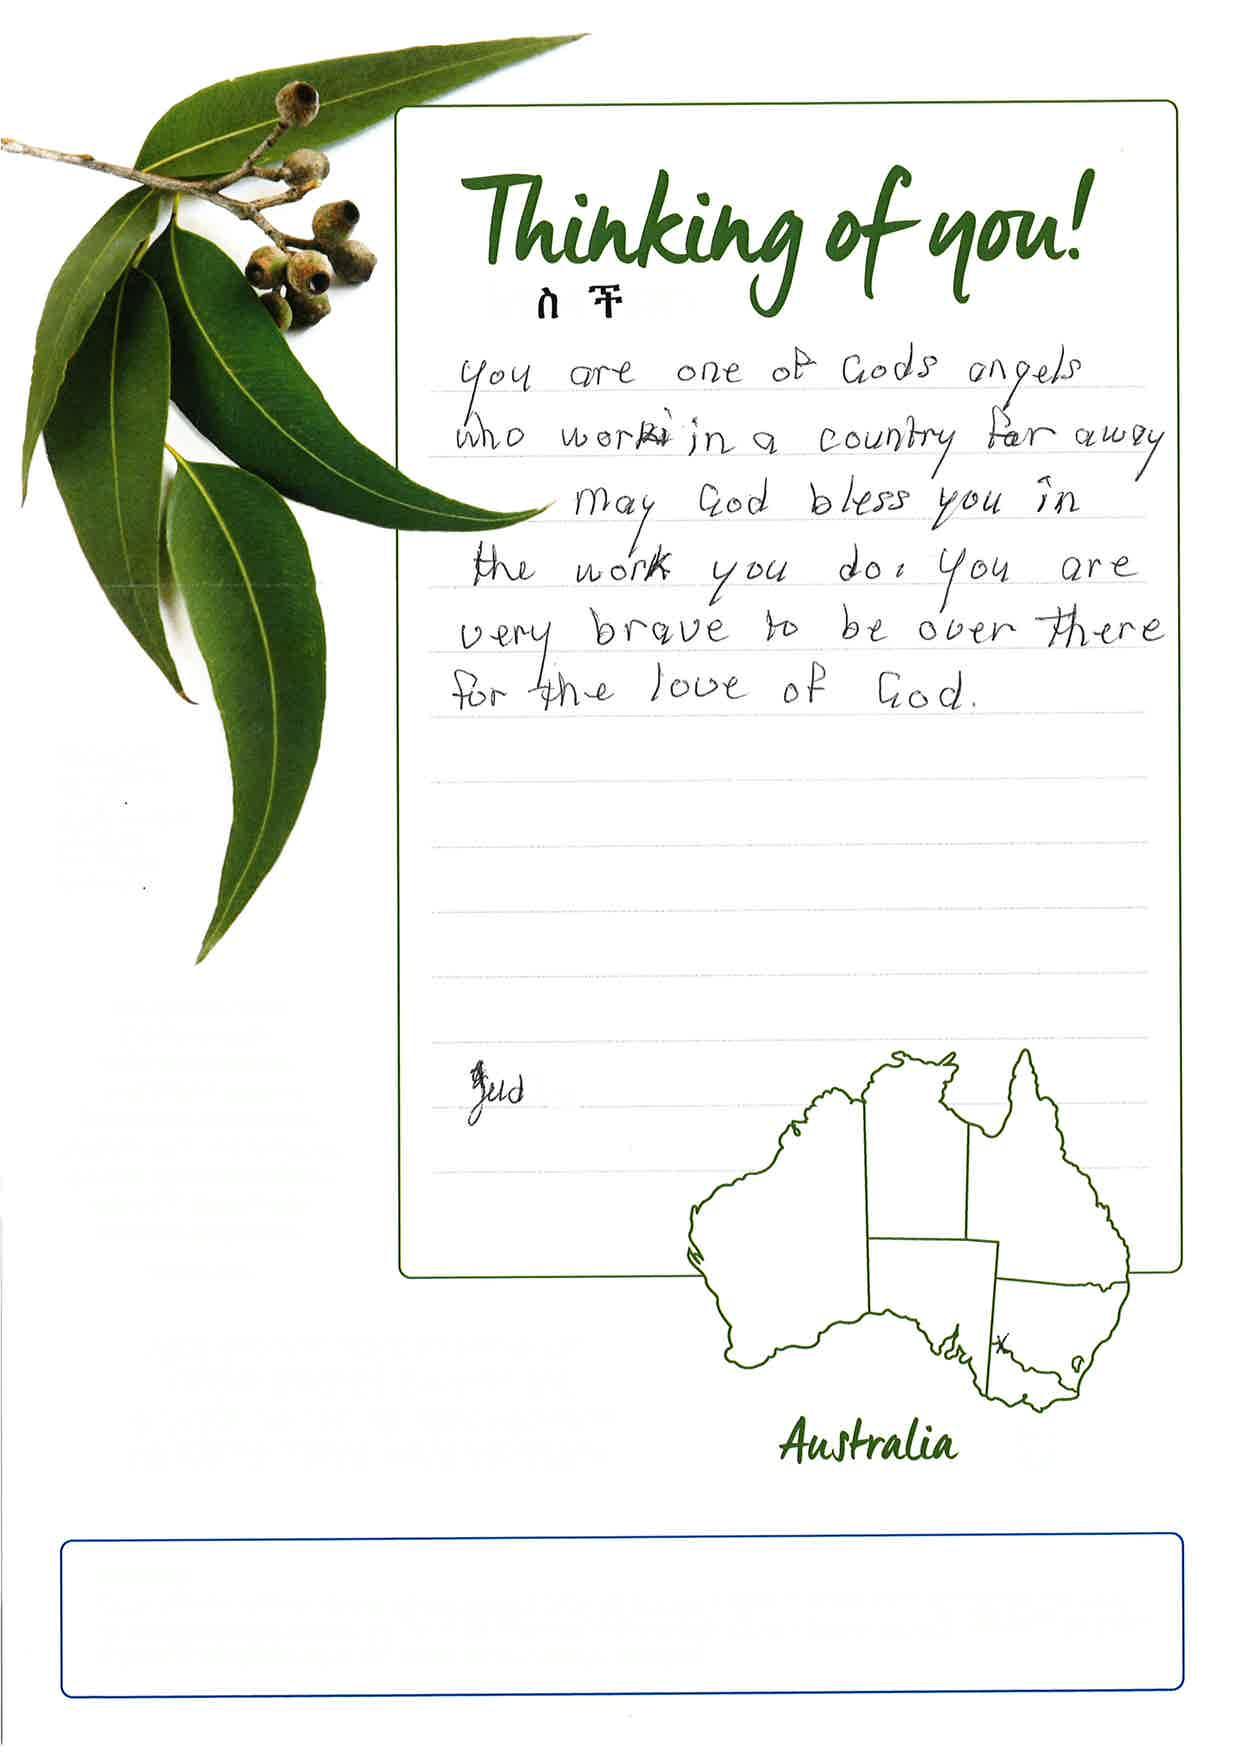 Thinking of you!
ስ ች
you are one of Gods angels
who work in a country far away
may God bless you in
the work you do. You are
very brave to be over there
for the love of God.
Jud
x
Australia